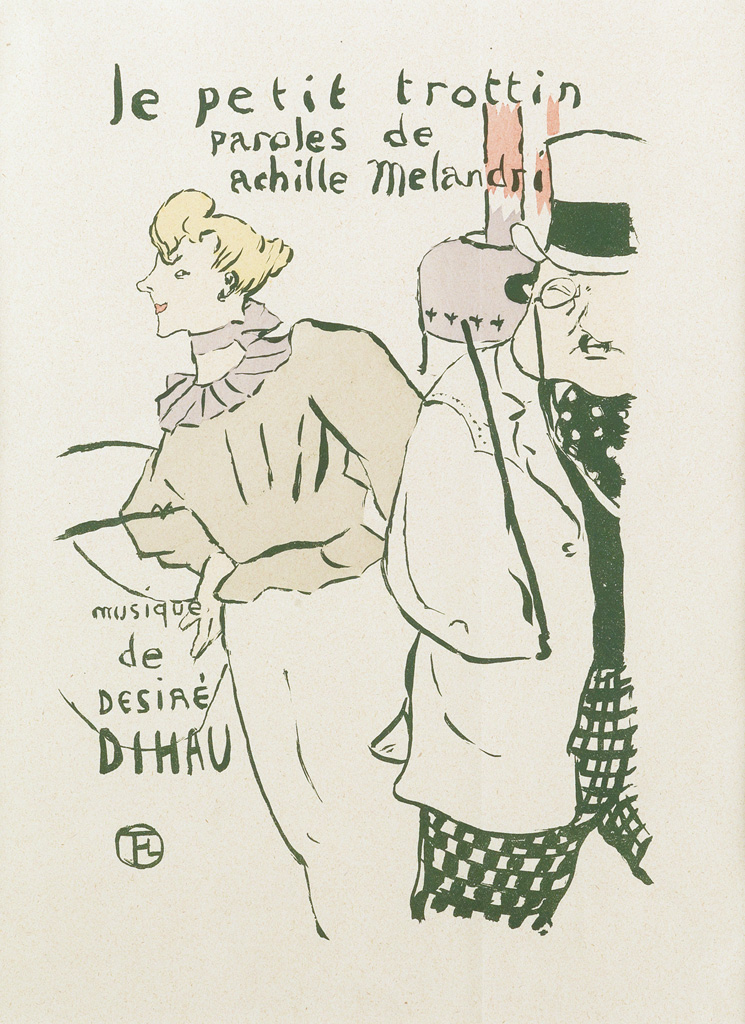 le petit trottin
paroles de
achille Melandri
musique
de
DESIRÉ
DIHAU